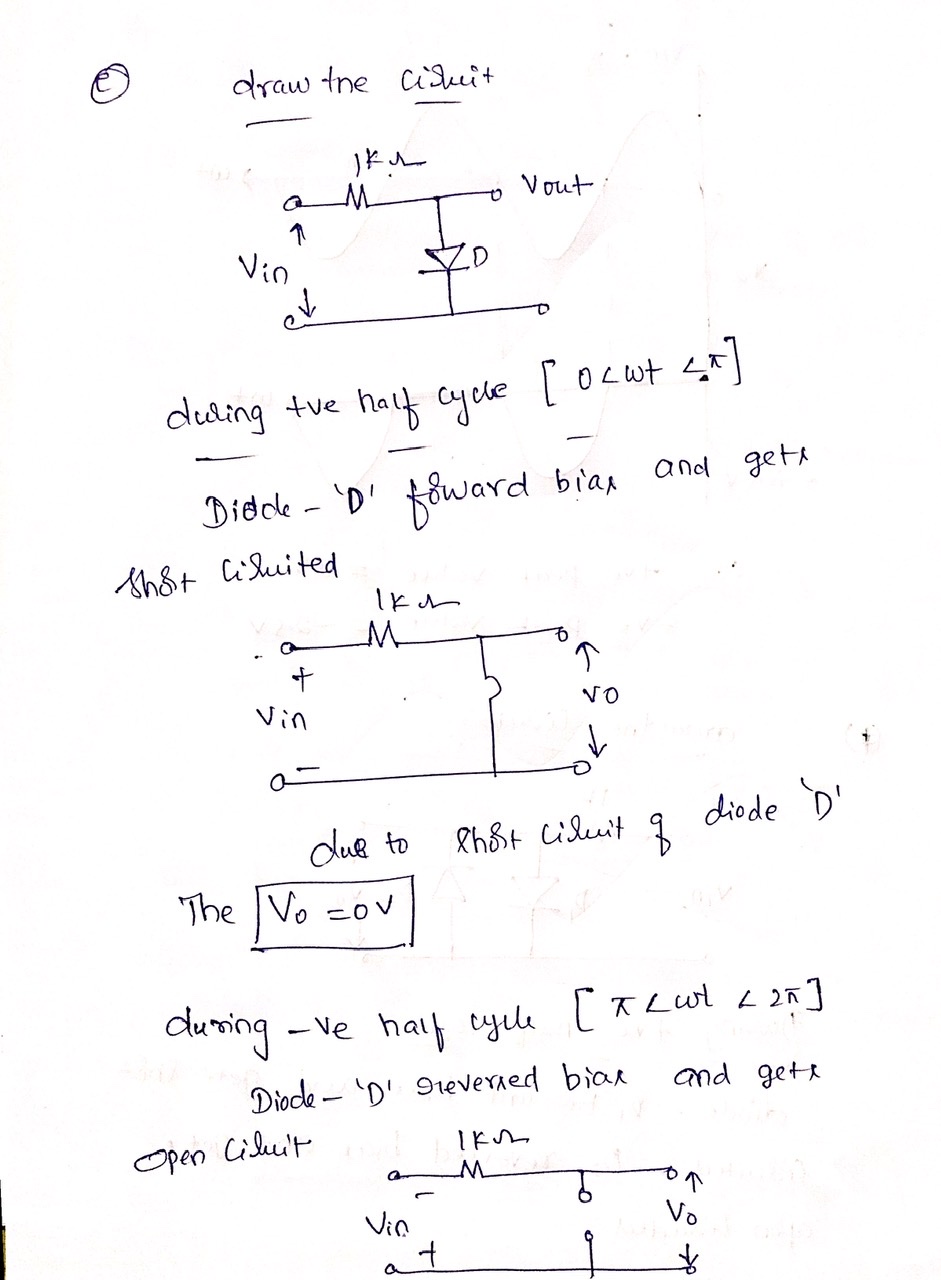 (e) draw the circuit
1kΩ
Vout
Vin
D
during +ve half cycle [ 0 < wt < π ]
Diode - 'D' forward bias and gets
short circuited
1kΩ
+
Vin
Vo
-
due to short circuit of diode 'D'
The Vo = 0V
during -ve half cycle [ π < wt < 2π ]
Diode - 'D' reversed bias and gets
open circuit
1kΩ
-
Vin
Vo
+